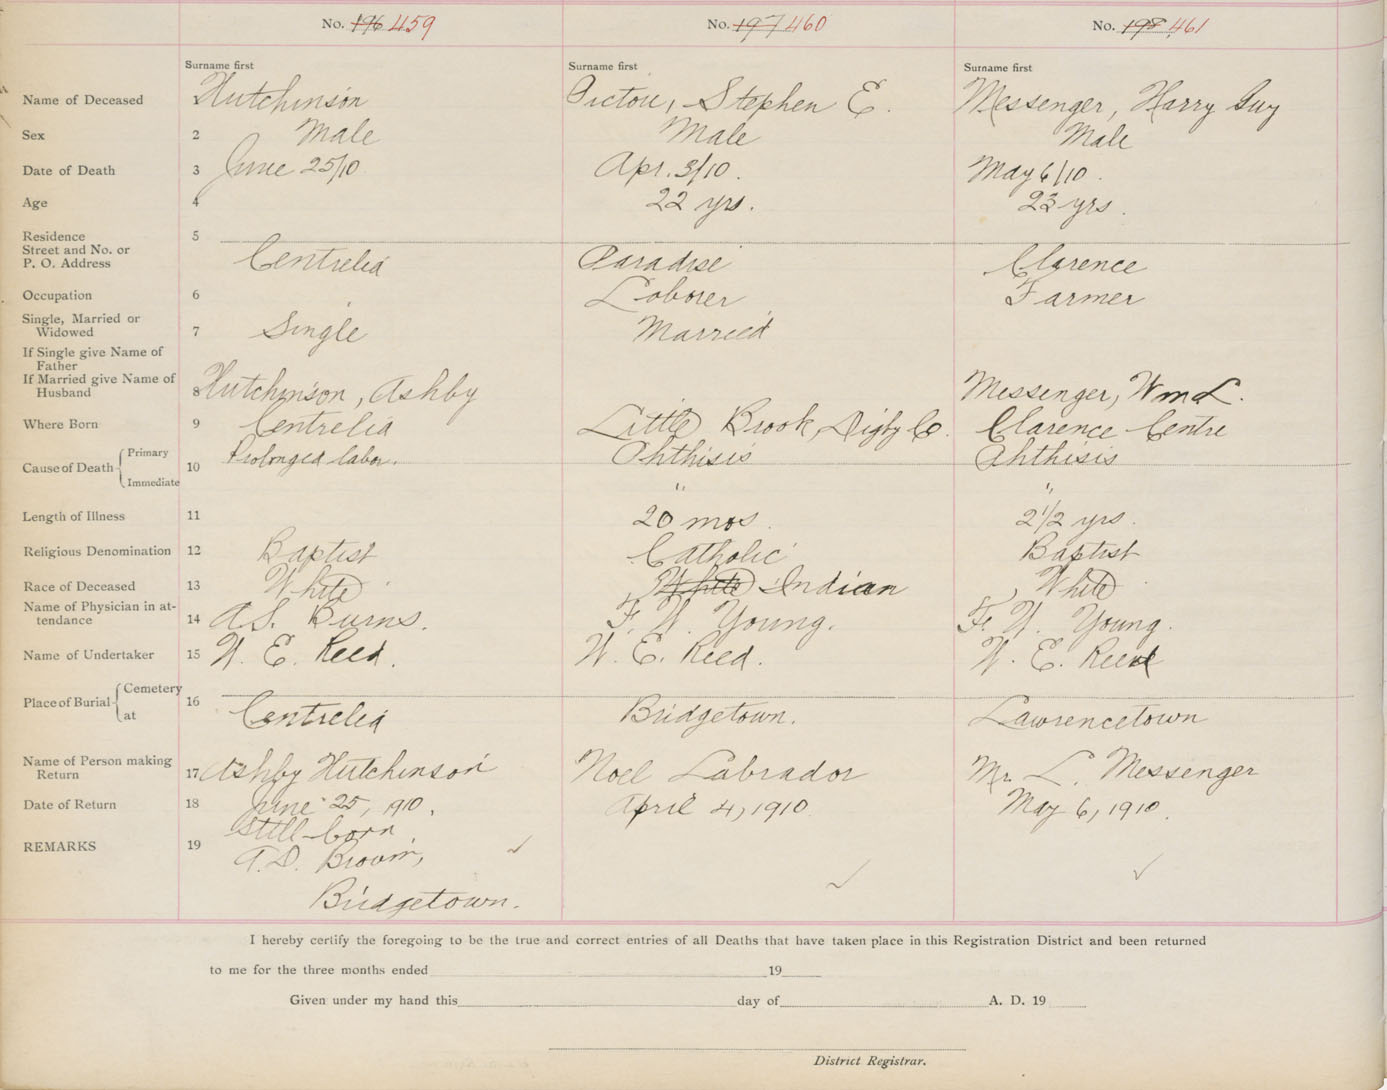 No. 196 459 No. 197 460 No. 198 461
Surname first Surname first Surname first
Name of Deceased 1 Hutchinson Pictou, Stephen E. Messenger, Harry Guy
Sex 2 Male Male Male
Date of Death 3 June 25/10 Apr. 3/10. May 6/10.
Age 4 22 yrs. 23 yrs.
Residence 5
Street and No. or
P. O. Address Centrelea Paradise Clarence
Occupation 6 Laborer Farmer
Single, Married or
Widowed 7 Single Married
If Single give Name of
Father
If Married give Name of
Husband 8 Hutchinson, Ashby Messenger, Wm L.
Where Born 9 Centrelea Little Brook, Digby Co. Clarence Centre
Cause of Death Primary 10 Prolonged labor. Phthisis Phthisis
Immediate " "
Length of Illness 11 20 mos. 2 1/2 yrs.
Religious Denomination 12 Baptist Catholic Baptist
Race of Deceased 13 White White Indian White
Name of Physician in at-
tendance 14 A.S. Burns. F. W. Young. F. W. Young.
Name of Undertaker 15 W. E. Reed. W. E. Reed. W. E. Reed
Place of Burial Cemetery 16
at Centrelea Bridgetown. Lawrencetown
Name of Person making
Return 17 Ashby Hutchinson Noel Labrador Mr. L. Messenger
Date of Return 18 June 25, 1910. April 4, 1910 May 6, 1910.
REMARKS 19 Still-born.
Bridgetown.
I hereby certify the foregoing to be the true and correct entries of all Deaths that have taken place in this Registration District and been returned
to me for the three months ended 19
Given under my hand this day of A. D. 19
District Registrar.